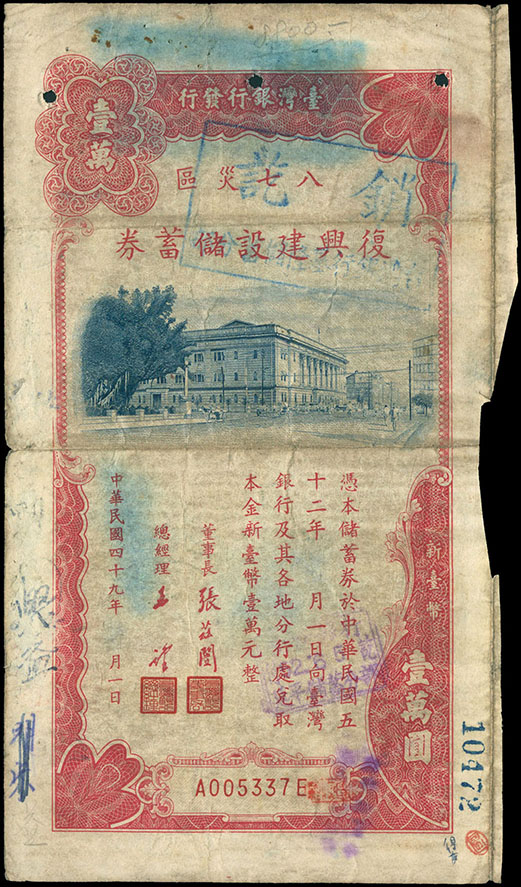 臺灣銀行發行
壹萬
八七災區
復興建設儲蓄券
銷
訖
憑本儲蓄券於中華民國五
十二年 月一日向臺灣
銀行及其各地分行處兌取
本金新臺幣壹萬元整
董事長
總經理
中華民國四十九年 月一日
新臺幣
壹萬圓
A005337E
10472